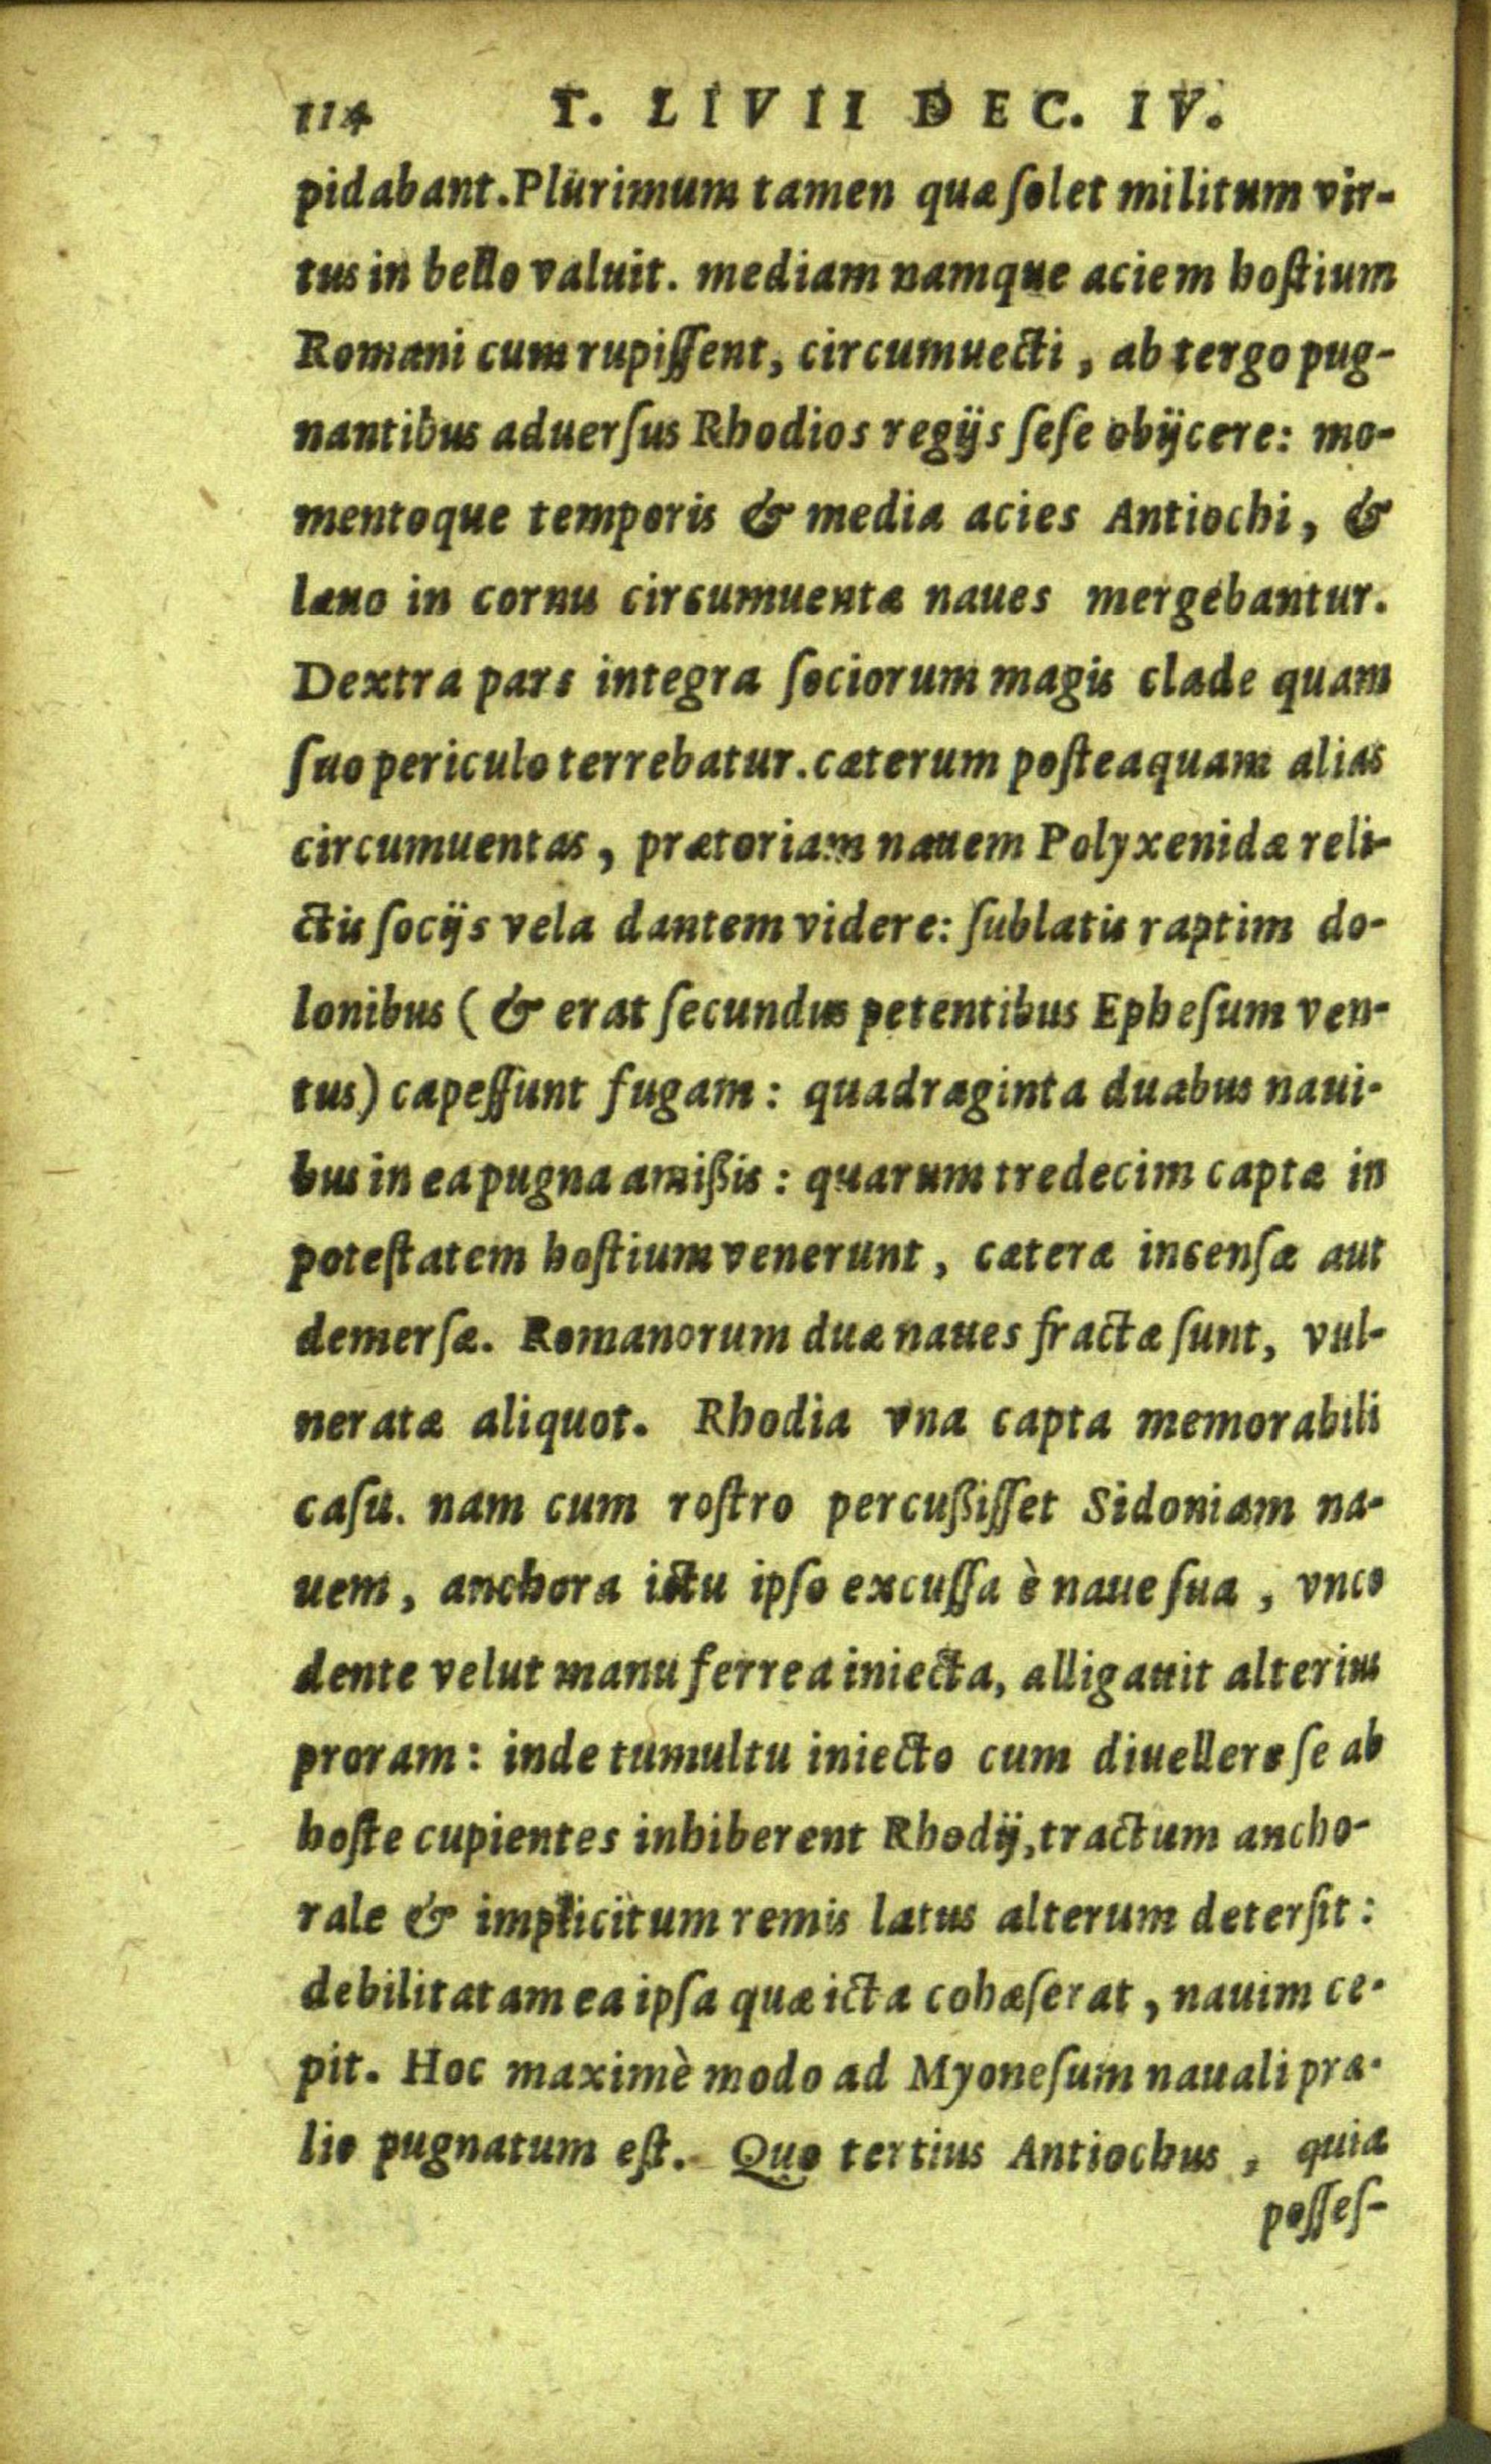 114 T. LIVII DEC. IV.
pidabant. Plurimum tamen quæ ſolet militum vir-
tus in bello valuit. mediam namque aciem hoſtium
Romani cum rupiſſent, circumuecti, ab tergo pug-
nantibus aduerſus Rhodios regijs ſeſe obijcere: mo-
mentoque temporis & media acies Antiochi, &
læuo in cornu circumuentæ naues mergebantur.
Dextra pars integra ſociorum magis clade quam
ſuo periculo terrebatur. cæterum poſteaquam alias
circumuentas, prætoriam nauem Polyxenidæ reli-
ctis ſocijs vela dantem videre: ſublatis raptim do-
lonibus (& erat ſecundus petentibus Epheſum ven-
tus) capeſſunt fugam: quadraginta duabus naui-
bus in ea pugna amißis: quarum tredecim captæ in
poteſtatem hoſtium venerunt, cæteræ incenſæ aut
demerſæ. Romanorum duæ naues fractæ ſunt, vul-
neratæ aliquot. Rhodia vna capta memorabili
caſu. nam cum roſtro percußiſſet Sidoniam na-
uem, anchora ictu ipſo excuſſa è naue ſua, vnco
dente velut manu ferrea iniecta, alligauit alterius
proram: inde tumultu iniecto cum diuellere ſe ab
hoſte cupientes inhiberent Rhodij, tractum ancho-
rale & implicitum remis latus alterum deterſit:
debilitatam ea ipſa quæ icta cohæſerat, nauim ce-
pit. Hoc maximè modo ad Myoneſum nauali præ-
lio pugnatum eſt. Quo tertius Antiochus, quia
poſſeſ-